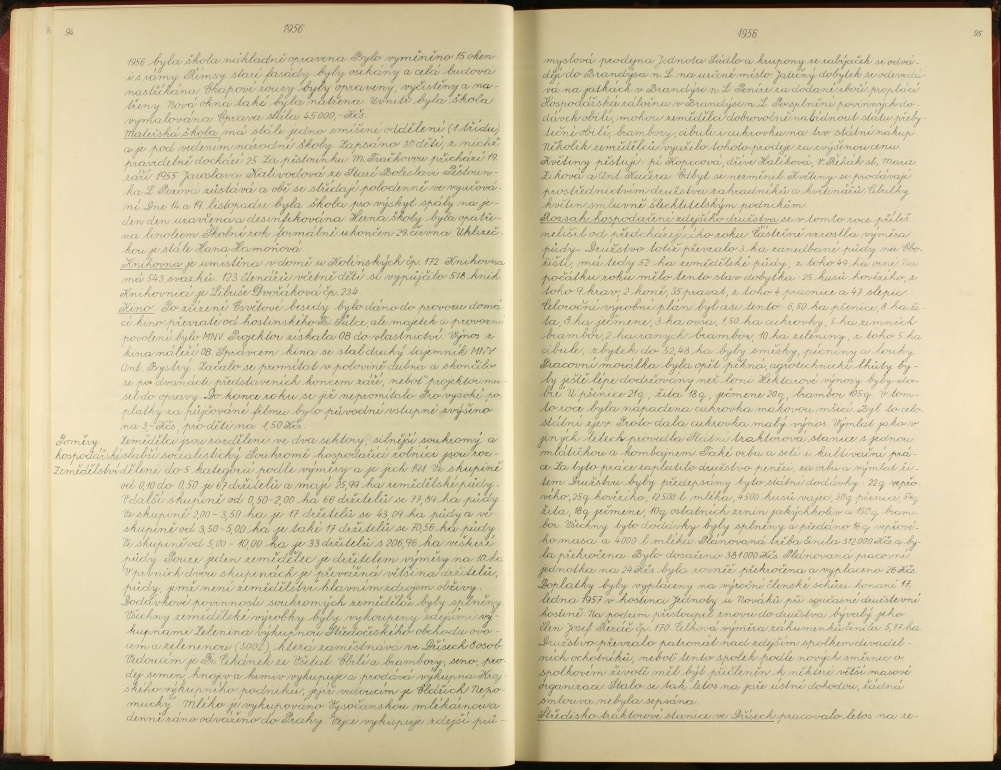 94
1956
1956 byla škola nákladně opravena. Bylo vyměněno 15 oken
i s rámy. Římsy staré fasády byly osekány a celá budova
nastříkána. Okapové roury byly opraveny, vyčistěny a na-
třeny. Nová okna také byla natřena. Uvnitř byla škola
vymalována. Oprava stála 45000,- Kčs.
Mateřská škola má stále jedno smíšené oddělení (1. třídu)
a je pod vedením národní školy. Zapsáno 30 dětí, z nichž
pravidelně dochází 25. Za pěstounku M. Trachovou přichází 19.
září 1955 Jaroslava Kalivodová ze Staré Boleslavi. Pěstoun-
ka L. zůstává a obě se střídají polodenně ve vyučová-
ní. Dne 14. a 19. listopadu byla škola pro výskyt spály na je-
den den uzavřena a desinfikována. Herna školy byla opatře-
na linoleem. Školní rok formálně ukončen 29. června. Uklízeč-
kou je stále Hana Hamonová.
Knihovna je umístěna v domě u Kolínských čp. 172. Knihovna
má 543 svazků. 123 čtenářů včetně dětí si vypůjčilo 518 knih.
Knihovnicí je Libuše Dvořáková čp. 234.
Kino. Po zřízení Osvětové besedy bylo dáno do provozu domá-
cí kino, převzaté od hostinského Fr. Šulce, ale majetek a provozní
povolení bylo MNV. Projektor získala OB do vlastnictví. Výnos z
kina náleží OB. Správcem kina se stal druhý tajemník MNV
Ant. Bystrý. Začalo se promítat v polovině dubna a skončilo
se po dvanácti představeních koncem září, neboť projektor mu-
sel do opravy. Do konce roku se již nepromítalo. Pro vysoké po-
platky za půjčování filmu bylo původní vstupné zvýšeno
na 3,- Kčs, pro děti na 1,50 Kčs.
Poměry Zemědělci jsou rozděleni ve dva sektory, silnější soukromý a
hospodářské slabší socialistický. Soukromě hospodařící rolníci jsou roz-
Zemědělství děleni do 5 kategorií podle výměry a je jich 191. Ve skupině
od 0,10 do 0,50 je 67 držitelů a mají 25,99 ha zemědělské půdy.
V další skupině od 0,50-2,00 ha 66 držitelů se 77,84 ha půdy.
Ve skupině 2,00-3,50 ha je 17 držitelů se 43,04 ha půdy a ve
skupině od 3,50-5,00 ha je také 17 držitelů se 70,56 ha půdy.
Ve skupině od 5,00-10,00 ha je 33 držitelů s 206,96 ha veškeré
půdy. Pouze jeden zemědělec je držitelem výměry na 10 ha.
V prvních dvou skupinách je převážná většina držitelů,
půdy, jimž není zemědělství hlavním zdrojem obživy.
Dodávkové povinnosti soukromých zemědělců byly splněny.
Všechny zemědělské výrobky byly vykoupeny zdejšími vý-
kupnami. Zelenina výkupnou Středočeského obchodu ovo-
cem a zeleninou (SOOZ), která zaměstnává ve Dřísech 8 osob.
Vedoucím je Fr. Cihánek ze Všetat. Obilí a brambory, seno, pro-
dej semen, hnojiv a krmiv vykupuje a prodává výkupna Kraj-
ského výkupního podniku, jejíž vedoucím je Oldřich Nepo-
mucký. Mléko je vykupováno Vysočanskou mlékárnou a
denně ráno odváženo do Prahy. Vejce vykupuje zdejší prů-
1956
95
myslová prodejna Jednota. Sádlo a krupony se zabíjaček se odvá-
dějí do Brandýsa n. L. na určené místo. Jatečný dobytek se odevzdá-
vá na jatkách v Brandýse n. L. Peníze za dodané zboží proplácí
Hospodářská záložna v Brandýse n. L. Po splnění povinných do-
dávek obilí, mohou zemědělci dobrovolně nabídnout státu přeby-
teční obilí, brambory, cibuli i cukrovku na tzv. státní nákup.
Několik zemědělců využilo tohoto prodeje za zvýšenou cenu.
Květiny pěstují: pí Kopicová, dříve Halíková, V. Řehák st., Marie
Zíková a Ant. Kučera. Odbyt se nezměnil. Květiny se prodávají
prostřednictvím družstva zahradníků a květinářů. Cibulky
květin smluvně šlechtitelským podnikům.
Rozsah hospodaření zdejšího družstva se v tomto roce příliš
nelišil od předcházejícího roku. Částečně vzrostla výměra
půdy. Družstvo totiž převzalo 3 ha zanedbané půdy na Obo-
řišti, má tedy 52 ha zemědělské půdy, z toho 49 ha orné. Na
počátku roku mělo tento stav dobytka: 25 kusů hovězího, z
toho 9 krav, 2 koně, 35 prasat, z toho 4 prasnice a 47 slepic.
Celoroční výrobní plán byl asi tento: 6,50 ha pšenice, 8 ha ži-
ta, 3 ha ječmene, 3 ha ovsa, 1,50 ha cukrovky, 5 ha zemních
brambor, 2 ha raných brambor, 10 ha zeleniny, z toho 5 ha
cibule, zbytek do 52,48 ha byly směsky, pícniny a louky.
Pracovní morálka byla opět pěkná, agrotechnické lhůty by-
ly ještě lépe dodržovány než loni. Hektarové výnosy byly do-
bré. U pšenice 21 q, žita 18 q, ječmene 20 q, brambor 105 q. V tom-
to roce byla napadena cukrovka makovou mšicí. Byl to celo-
státní zjev. Proto dala cukrovka malý výnos. Výmlat jako v
jiných letech provedla Státní traktorová stanice s jednou
mlátičkou a kombajnem. Také orbu a setí i kultivační prá-
ce. Za tyto práce zaplatilo družstvo penězi, za orbu a výmlat ži-
tem. Družstvu byly předepsány tyto státní dodávky: 22 q vepřo-
vého, 25 q hovězího, 12500 l mléka, 4500 kusů vajec, 30 q pšenice, 54 q
žita, 18 q ječmene, 10 q ostatních zrnin jakýchkoliv a 150 q bram-
bor. Všechny tyto dodávky byly splněny a předáno 16 q vepřové-
ho masa a 4000 l mléka. Plánovaná tržba činila 312000 Kčs a by-
la překročena. Bylo dosaženo 381000 Kčs. Plánovaná pracovní
jednotka na 24 Kčs byla rovněž překročena a vyplaceno 26 Kčs.
Doplatky byly vypláceny na výroční členské schůzi konané 17.
ledna 1957 v hostinci Jednoty u Nováků při současné družstevní
hostině. Na podzim přistoupil znovu do družstva bývalý jeho
člen Josef čp. 170. Celková výměra záhumenků činila 5,17 ha.
Družstvo převzalo patronát nad zdejším spolkem divadel-
ních ochotníků, neboť tento spolek podle nových směrnic o
spolkovém životě měl být přičleněn k některé větší masové
organizaci. Stalo se tak letos na jaře ústní dohodou, žádná
smlouva nebyla sepsána.
Středisko traktorové stanice ve Dřísech pracovalo letos na ze-